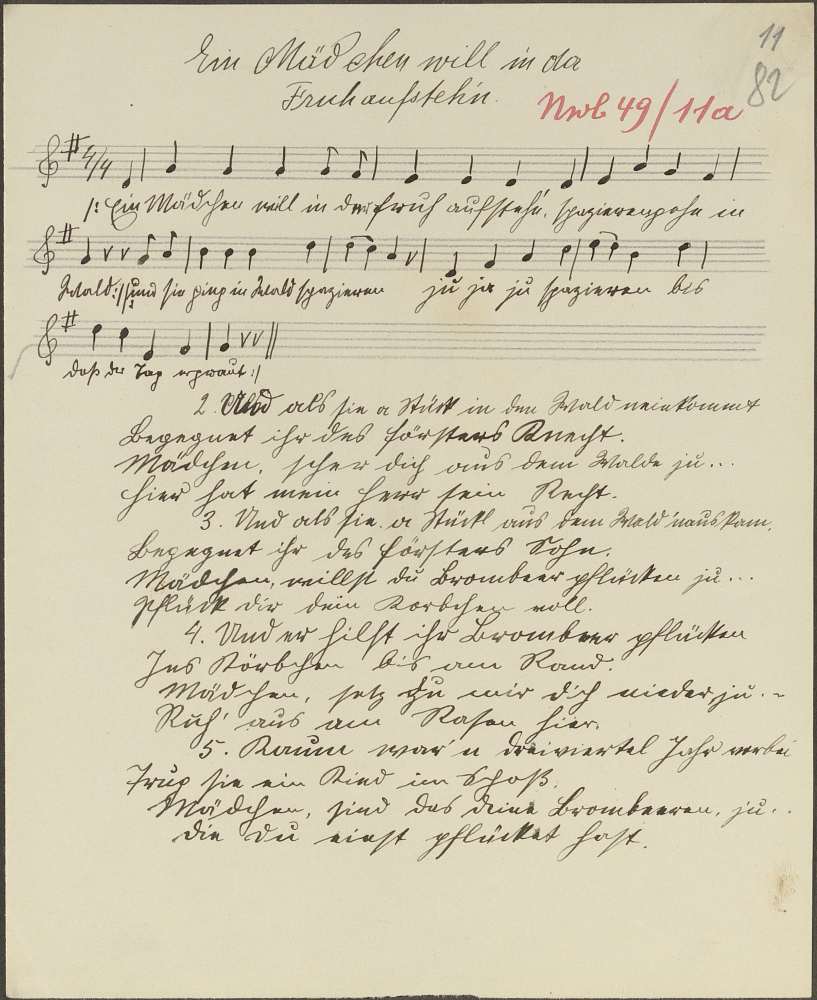 11
82
Ein Mädchen will in da
Fruh aufsteh'n.
Nwb 49/11a
4/4
/: Ein Mädchen will in der fruh aufsteh'n, spazierengehn in
Wald :// und sie ging in Wald spazieren ju ja ju spazieren bis
daß der Tag ergraut :/
2. Und als sie a Stück in den Wald neinkommt
Begegnet ihr des Försters Knecht.
Mädchen, scher dich aus dem Walde ju...
hier hat mein Herr sein Recht.
3. Und als sie a Stückl aus dem Wald 'nauskam,
Begegnet ihr des Försters Sohn.
Mädchen, willst du Brombeer pflücken ju...
Pflück dir dein Korbchen voll.
4. Und er hilft ihr Brombeer pflücken
Ins Körbchen bis am Rand.
Mädchen, setz zu mir dich nieder, ju..
Ruh' aus am Rasen hier.
5. Kaum war'n dreiviertel Jahr vorbei
Trug sie ein Kind im Schoß.
Mädchen, sind das deine Brombeeren, ju..
die du einst pflücket hast.